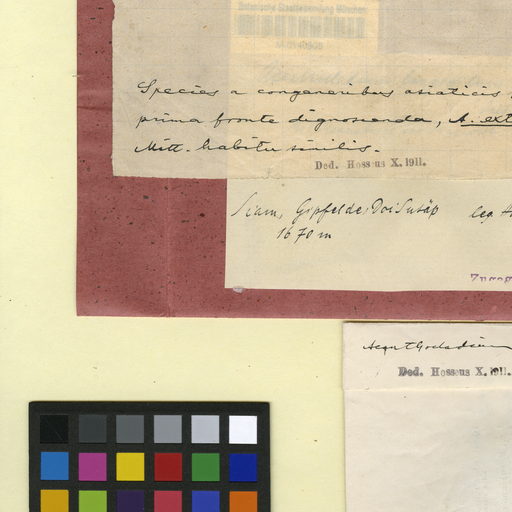 Botanische Staatssammlung München
Species a congeneribus asiaticis
prima fronte dignoscenda, A. ext
Mitt. habitu similis.
Ded. Hosseus X. 1911.
Siam, Gipfel des Doi Sutäp leg
1670 m
Ded. Hosseus X. 1911.